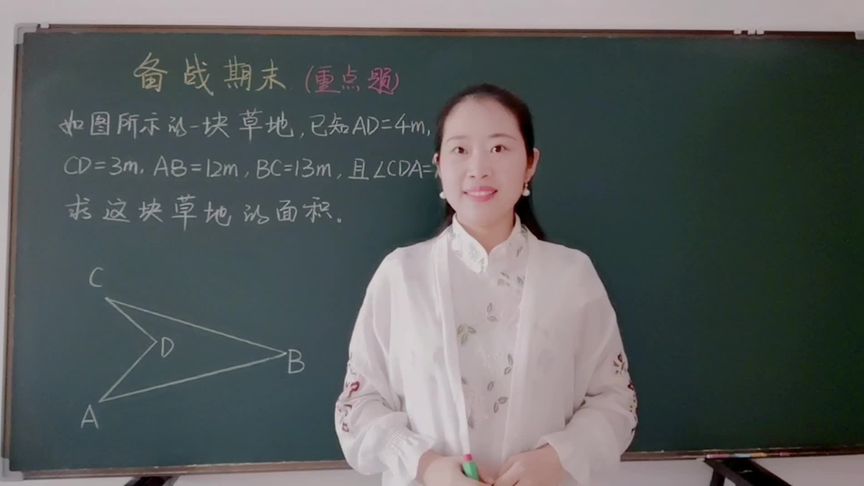 备战期末(重点题)
如图所示的一块草地,已知AD=4m,
CD=3m, AB=12m, BC=13m, 且∠CDA=
求这块草地的面积。
C
D
B
A